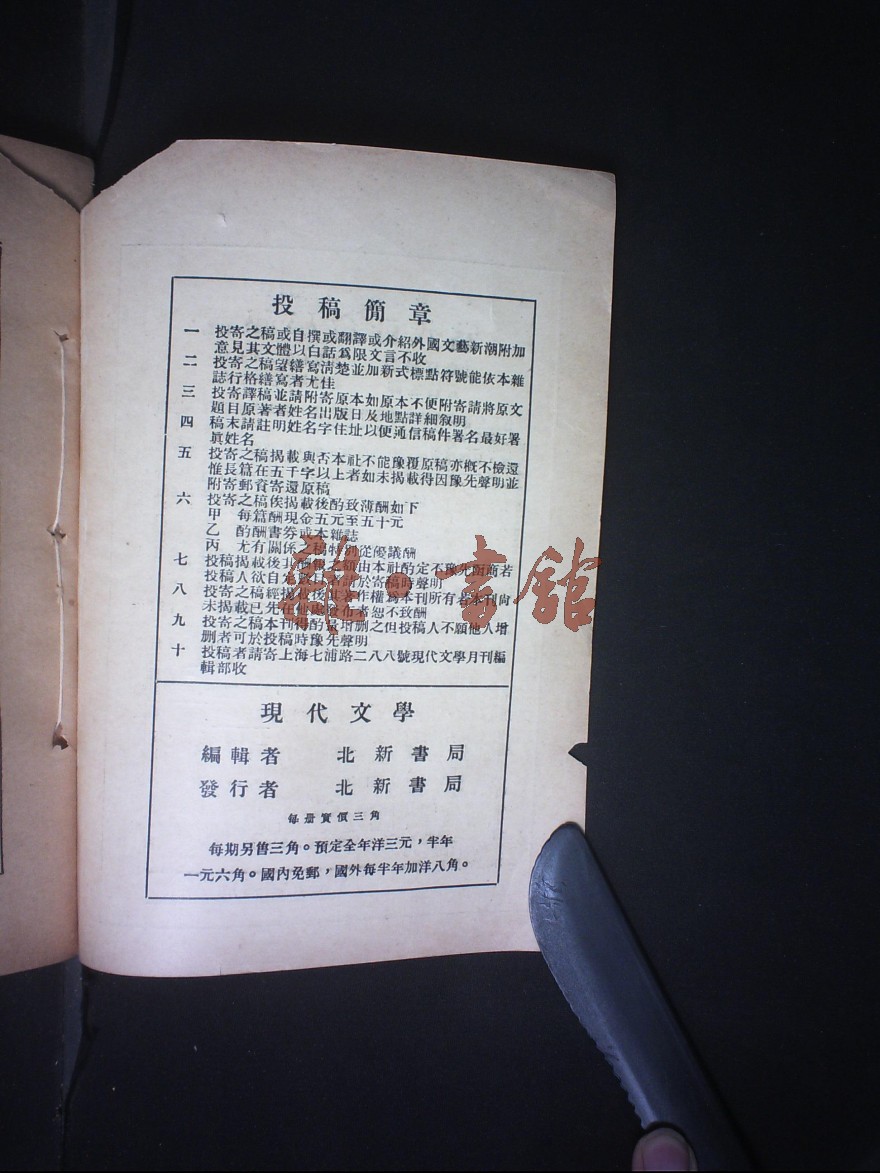 投稿簡章
一 投寄之稿或自撰或翻譯或介紹外國文藝新潮附加
意見其文體以白話爲限文言不收
二 投寄之稿望繕寫清楚並加新式標點符號能依本雜
誌行格繕寫者尤佳
三 投寄譯稿並請附寄原本如原本不便附寄請將原文
題目原著者姓名出版日及地點詳細敘明
四 稿末請註明姓名字住址以便通信稿件署名最好署
眞姓名
五 投寄之稿揭載與否本社不能豫覆原稿亦概不檢還
惟長篇在五千字以上者如未揭載得因豫先聲明並
附寄郵資寄還原稿
六 投寄之稿俟揭載後酌致薄酬如下
甲 每篇酬現金五元至五十元
乙 酌酬書券或本雜誌
丙 尤有關係之稿特別從優議酬
七 投稿揭載後由本社酌定不豫先商者若
投稿人欲自請於寄稿時聲明
八 投寄之稿經揭載後其著作權爲本刊所有若本刊尙
未揭載已先在發布者恕不致酬
九 投寄之稿本刊得酌量增删之但投稿人不願他人增
删者可於投稿時豫先聲明
十 投稿者請寄上海七浦路二八八號現代文學月刊編
輯部收
現代文學
編輯者 北新書局
發行者 北新書局
每册實價三角
每期另售三角。預定全年洋三元，半年
一元六角。國內免郵，國外每半年加洋八角。
雜·書館